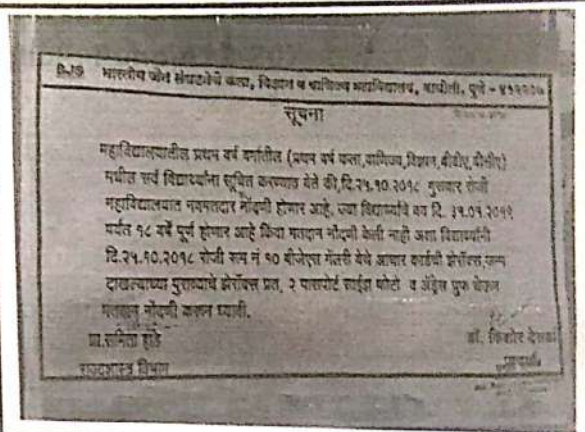 BJS भारतीय जैन संघटनेचे कला, विज्ञान व वाणिज्य महाविद्यालय, वाघोली, पुणे - ४१२२०७
सूचना
महाविद्यालयातील प्रथम वर्ष वर्गातील (प्रथम वर्ष कला,वाणिज्य,विज्ञान,बीबीए,बीसीए)
मधील सर्व विद्यार्थ्यांना सूचित करण्यात येते की,दि.२५.१०.२०१८ गुरुवार रोजी
महाविद्यालयात नवमतदार नोंदणी होणार आहे. ज्या विद्यार्थ्यांचे वय दि. ३१.०१.२०१९
पर्यंत १८ वर्षे पूर्ण होणार आहे किंवा मतदान नोंदणी केली नाही अशा विद्यार्थ्यांनी
दि.२५.१०.२०१८ रोजी रूम नं १० बीजेएस गॅलरी येथे आधार कार्डची झेरॉक्स,जन्म
दाखल्याच्या पुराव्याचे झेरॉक्स प्रत, २ पासपोर्ट साईझ फोटो व अ‍ॅड्रेस प्रुफ घेऊन
नोंदणी करून घ्यावी.
प्रा. डॉ. किशोर
राज्यशास्त्र विभाग प्राचार्य